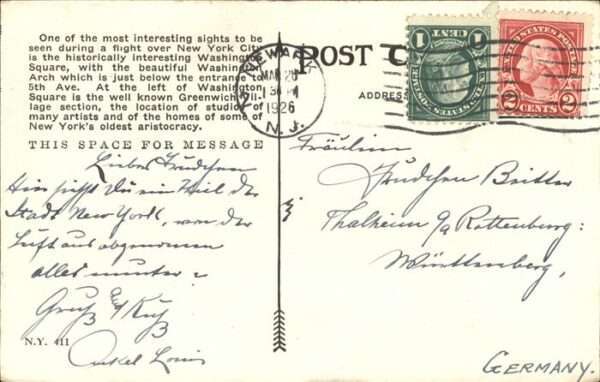 One of the most interesting sights to be
seen during a flight over New York City
is the historically interesting Washington
Square, with the beautiful Washington
Arch which is just below the entrance to
5th Ave. At the left of Washington
Square is the well known Greenwich Village section, the location of studios of
many artists and of the homes of some of
New York's oldest aristocracy.
THIS SPACE FOR MESSAGE
Liebes Trudchen
Hier siehst Du ein Theil der
Stadt New York, von der
Luft aus abgenommen
alles munter
Gruß Kuß
Onkel Louis
N.Y. 411
POST C
ADDRESS
NEWARK
MAR
1926
N.J.
1 CENT 1
UNITED STATES POSTAGE
2 CENTS 2
Fräulein
Trudchen Britter
Thalheim a/a Rottenburg:
Württemberg,
GERMANY.